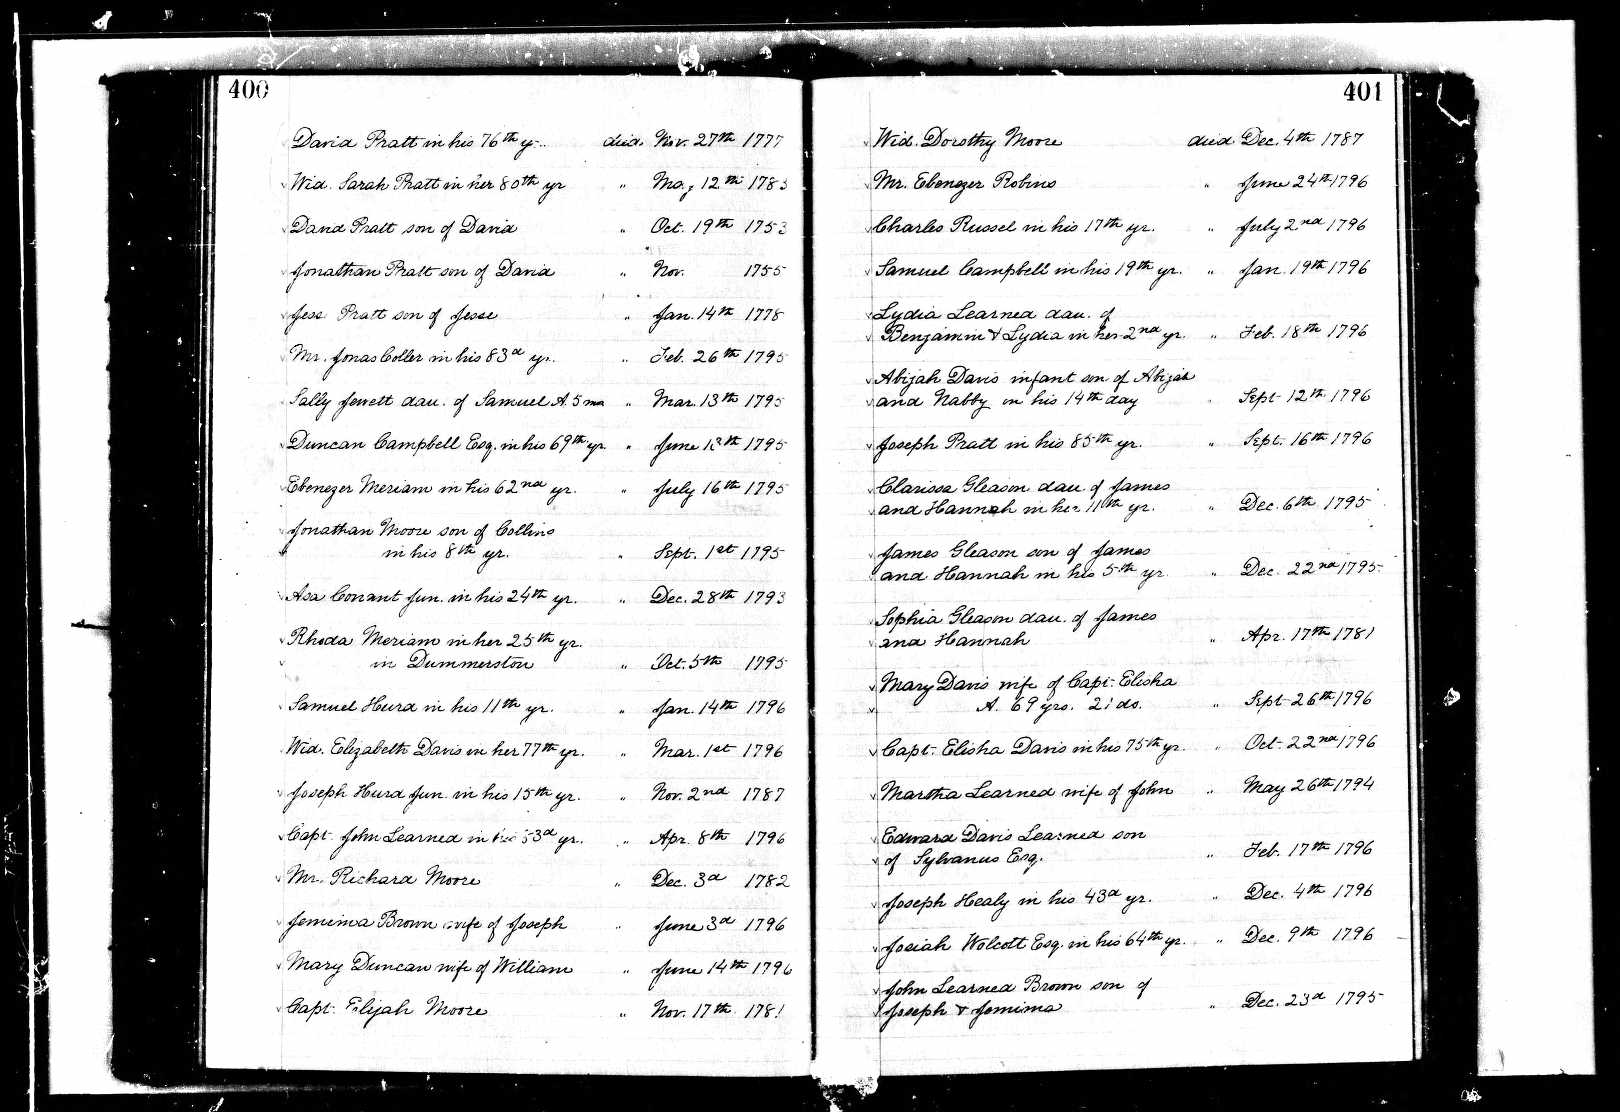 400
David Pratt in his 76th y. died Nov. 27th 1777
Wid. Sarah Pratt in her 80th yr " May 12th 1783
David Pratt son of David " Oct. 19th 1753
Jonathan Pratt son of David " Nov. 1755
Jess Pratt son of Jesse " Jan. 14th 1778
Mr. Jonas Coller in his 83d yr. " Feb. 26th 1795
Sally Jewett dau. of Samuel A. 5 mo " Mar. 13th 1795
Duncan Campbell Esq. in his 69th yr. " June 13th 1795
Ebenezer Meriam in his 62nd yr. " July 16th 1795
Jonathan Moore son of Collins
in his 8th yr. " Sept. 1st 1795
Asa Conant Jun. in his 24th yr. " Dec. 28th 1793
Rhoda Meriam in her 25th yr.
in Dummerston " Oct. 5th 1795
Samuel Hurd in his 11th yr. " Jan. 14th 1796
Wid. Elizabeth Davis in her 77th yr. " Mar. 1st 1796
Joseph Hurd Jun. in his 15th yr. " Nov. 2nd 1787
Capt. John Learned in his 53d yr. " Apr. 8th 1796
Mr. Richard Moore " Dec. 3d 1782
Jemima Brown wife of Joseph " June 3d 1796
Mary Duncan wife of William " June 14th 1796
Capt. Elijah Moore " Nov. 17th 1781
401
Wid. Dorothy Moore died Dec. 4th 1787
Mr. Ebenezer Robins " June 24th 1796
Charles Russel in his 17th yr. " July 2nd 1796
Samuel Campbell in his 19th yr. " Jan. 19th 1796
Lydia Learned dau. of
Benjamin & Lydia in her 2nd yr. " Feb. 18th 1796
Abijah Davis infant son of Abijah
and Nabby in his 14th day " Sept 12th 1796
Joseph Pratt in his 85th yr. " Sept. 16th 1796
Clarissa Gleason dau. of James
and Hannah in her 11th yr. " Dec. 6th 1795
James Gleason son of James
and Hannah in his 5th yr. " Dec. 22nd 1795
Sophia Gleason dau. of James
and Hannah " Apr. 17th 1781
Mary Davis wife of Capt. Elisha
A. 69 yrs. 21 ds. " Sept 26th 1796
Capt. Elisha Davis in his 75th yr. " Oct. 22nd 1796
Martha Learned wife of John " May 26th 1794
Edward Davis Learned son
of Sylvanus Esq. " Feb. 17th 1796
Joseph Healy in his 43d yr. " Dec. 4th 1796
Josiah Wolcott Esq. in his 64th yr. " Dec. 9th 1796
John Learned Brown son of
Joseph & Jemima " Dec. 23d 1795